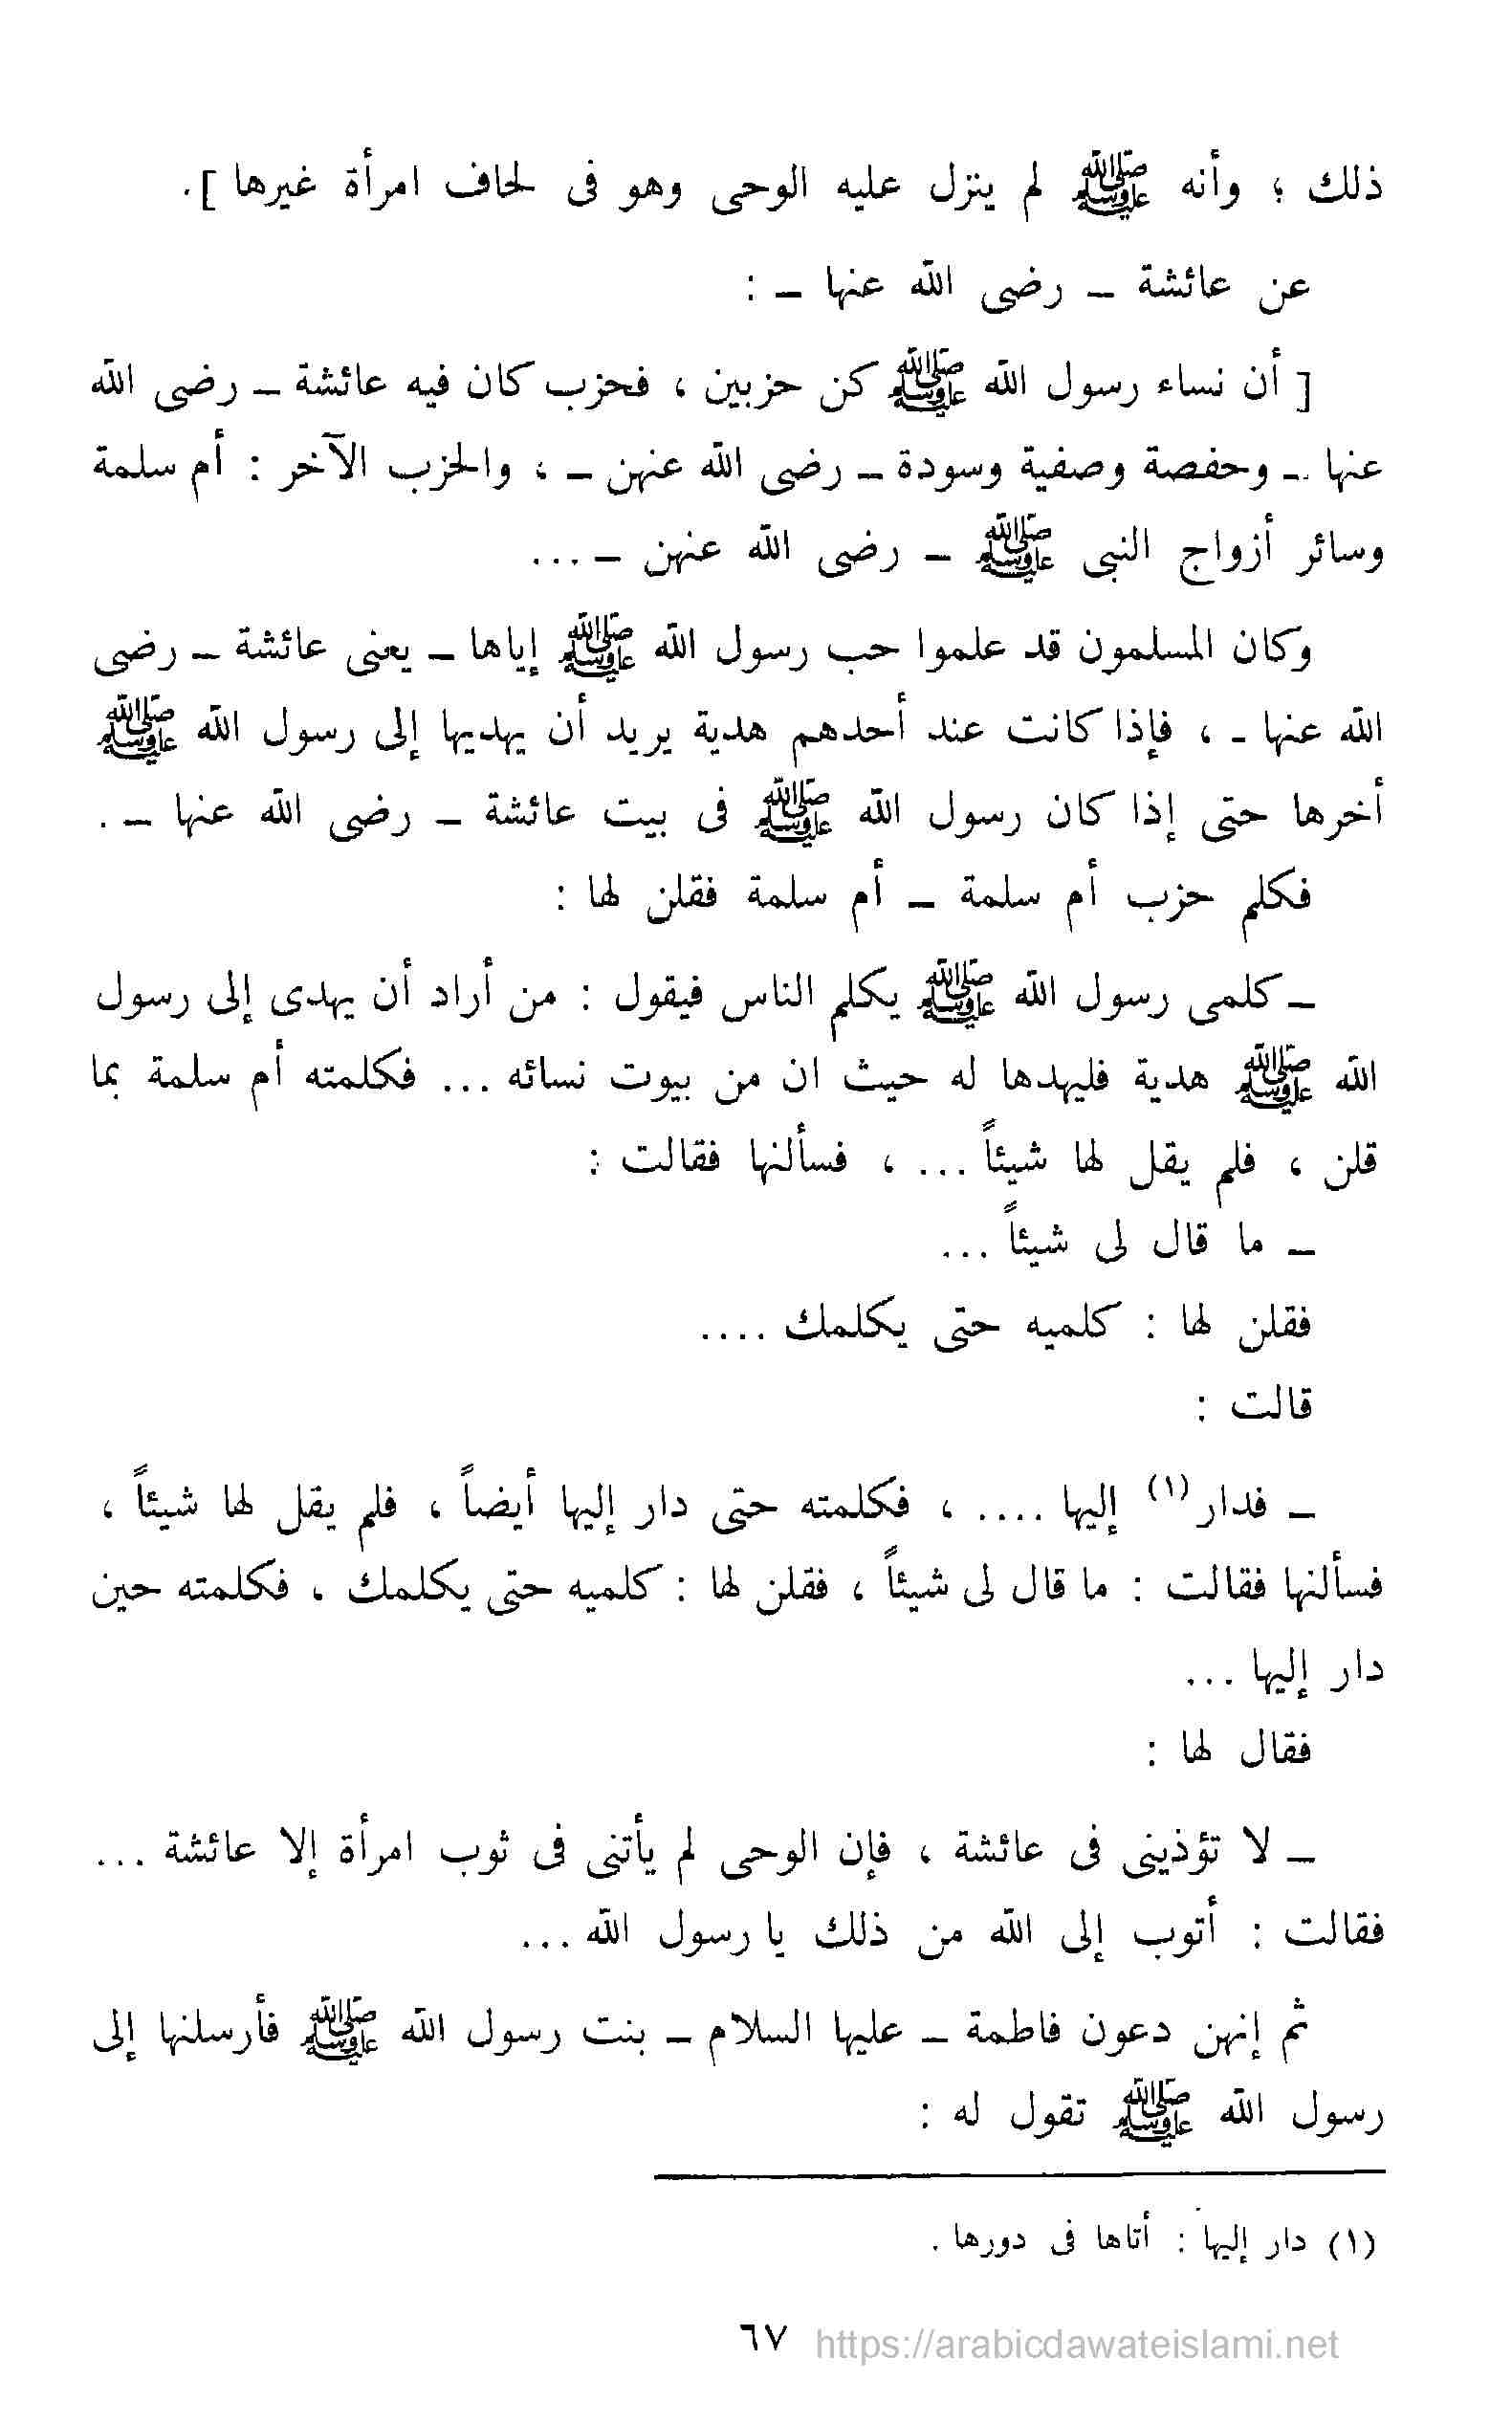 ذلك ؛ وأنه ﷺ لم ينزل عليه الوحى وهو فى لحاف امرأة غيرها ].
عن عائشة – رضى الله عنها – :
[ أن نساء رسول الله ﷺ كن حزبين ، فحزب كان فيه عائشة – رضى الله
عنها – وحفصة وصفية وسودة – رضى الله عنهن – ، والحزب الآخر : أم سلمة
وسائر أزواج النبى ﷺ – رضى الله عنهن – ...
وكان المسلمون قد علموا حب رسول الله ﷺ إياها – يعنى عائشة – رضى
الله عنها - ، فإذا كانت عند أحدهم هدية يريد أن يهديها إلى رسول الله ﷺ
أخرها حتى إذا كان رسول الله ﷺ فى بيت عائشة – رضى الله عنها – .
فكلم حزب أم سلمة – أم سلمة فقلن لها :
– كلمى رسول الله ﷺ يكلم الناس فيقول : من أراد أن يهدى إلى رسول
الله ﷺ هدية فليهدها له حيث ان من بيوت نسائه ... فكلمته أم سلمة بما
قلن ، فلم يقل لها شيئاً ... ، فسألنها فقالت :
– ما قال لى شيئاً ...
فقلن لها : كلميه حتى يكلمك ....
قالت :
– فدار (١) إليها .... ، فكلمته حتى دار إليها أيضاً ، فلم يقل لها شيئاً ،
فسألنها فقالت : ما قال لى شيئاً ، فقلن لها : كلميه حتى يكلمك . فكلمته حين
دار إليها ...
فقال لها :
– لا تؤذينى فى عائشة ، فإن الوحى لم يأتنى فى ثوب امرأة إلا عائشة ...
فقالت : أتوب إلى الله من ذلك يا رسول الله ...
ثم إنهن دعون فاطمة – عليها السلام – بنت رسول الله ﷺ فأرسلنها إلى
رسول الله ﷺ تقول له :
(١) دار إليها : أتاها فى دورها .
٦٧ https://arabicdawateislami.net